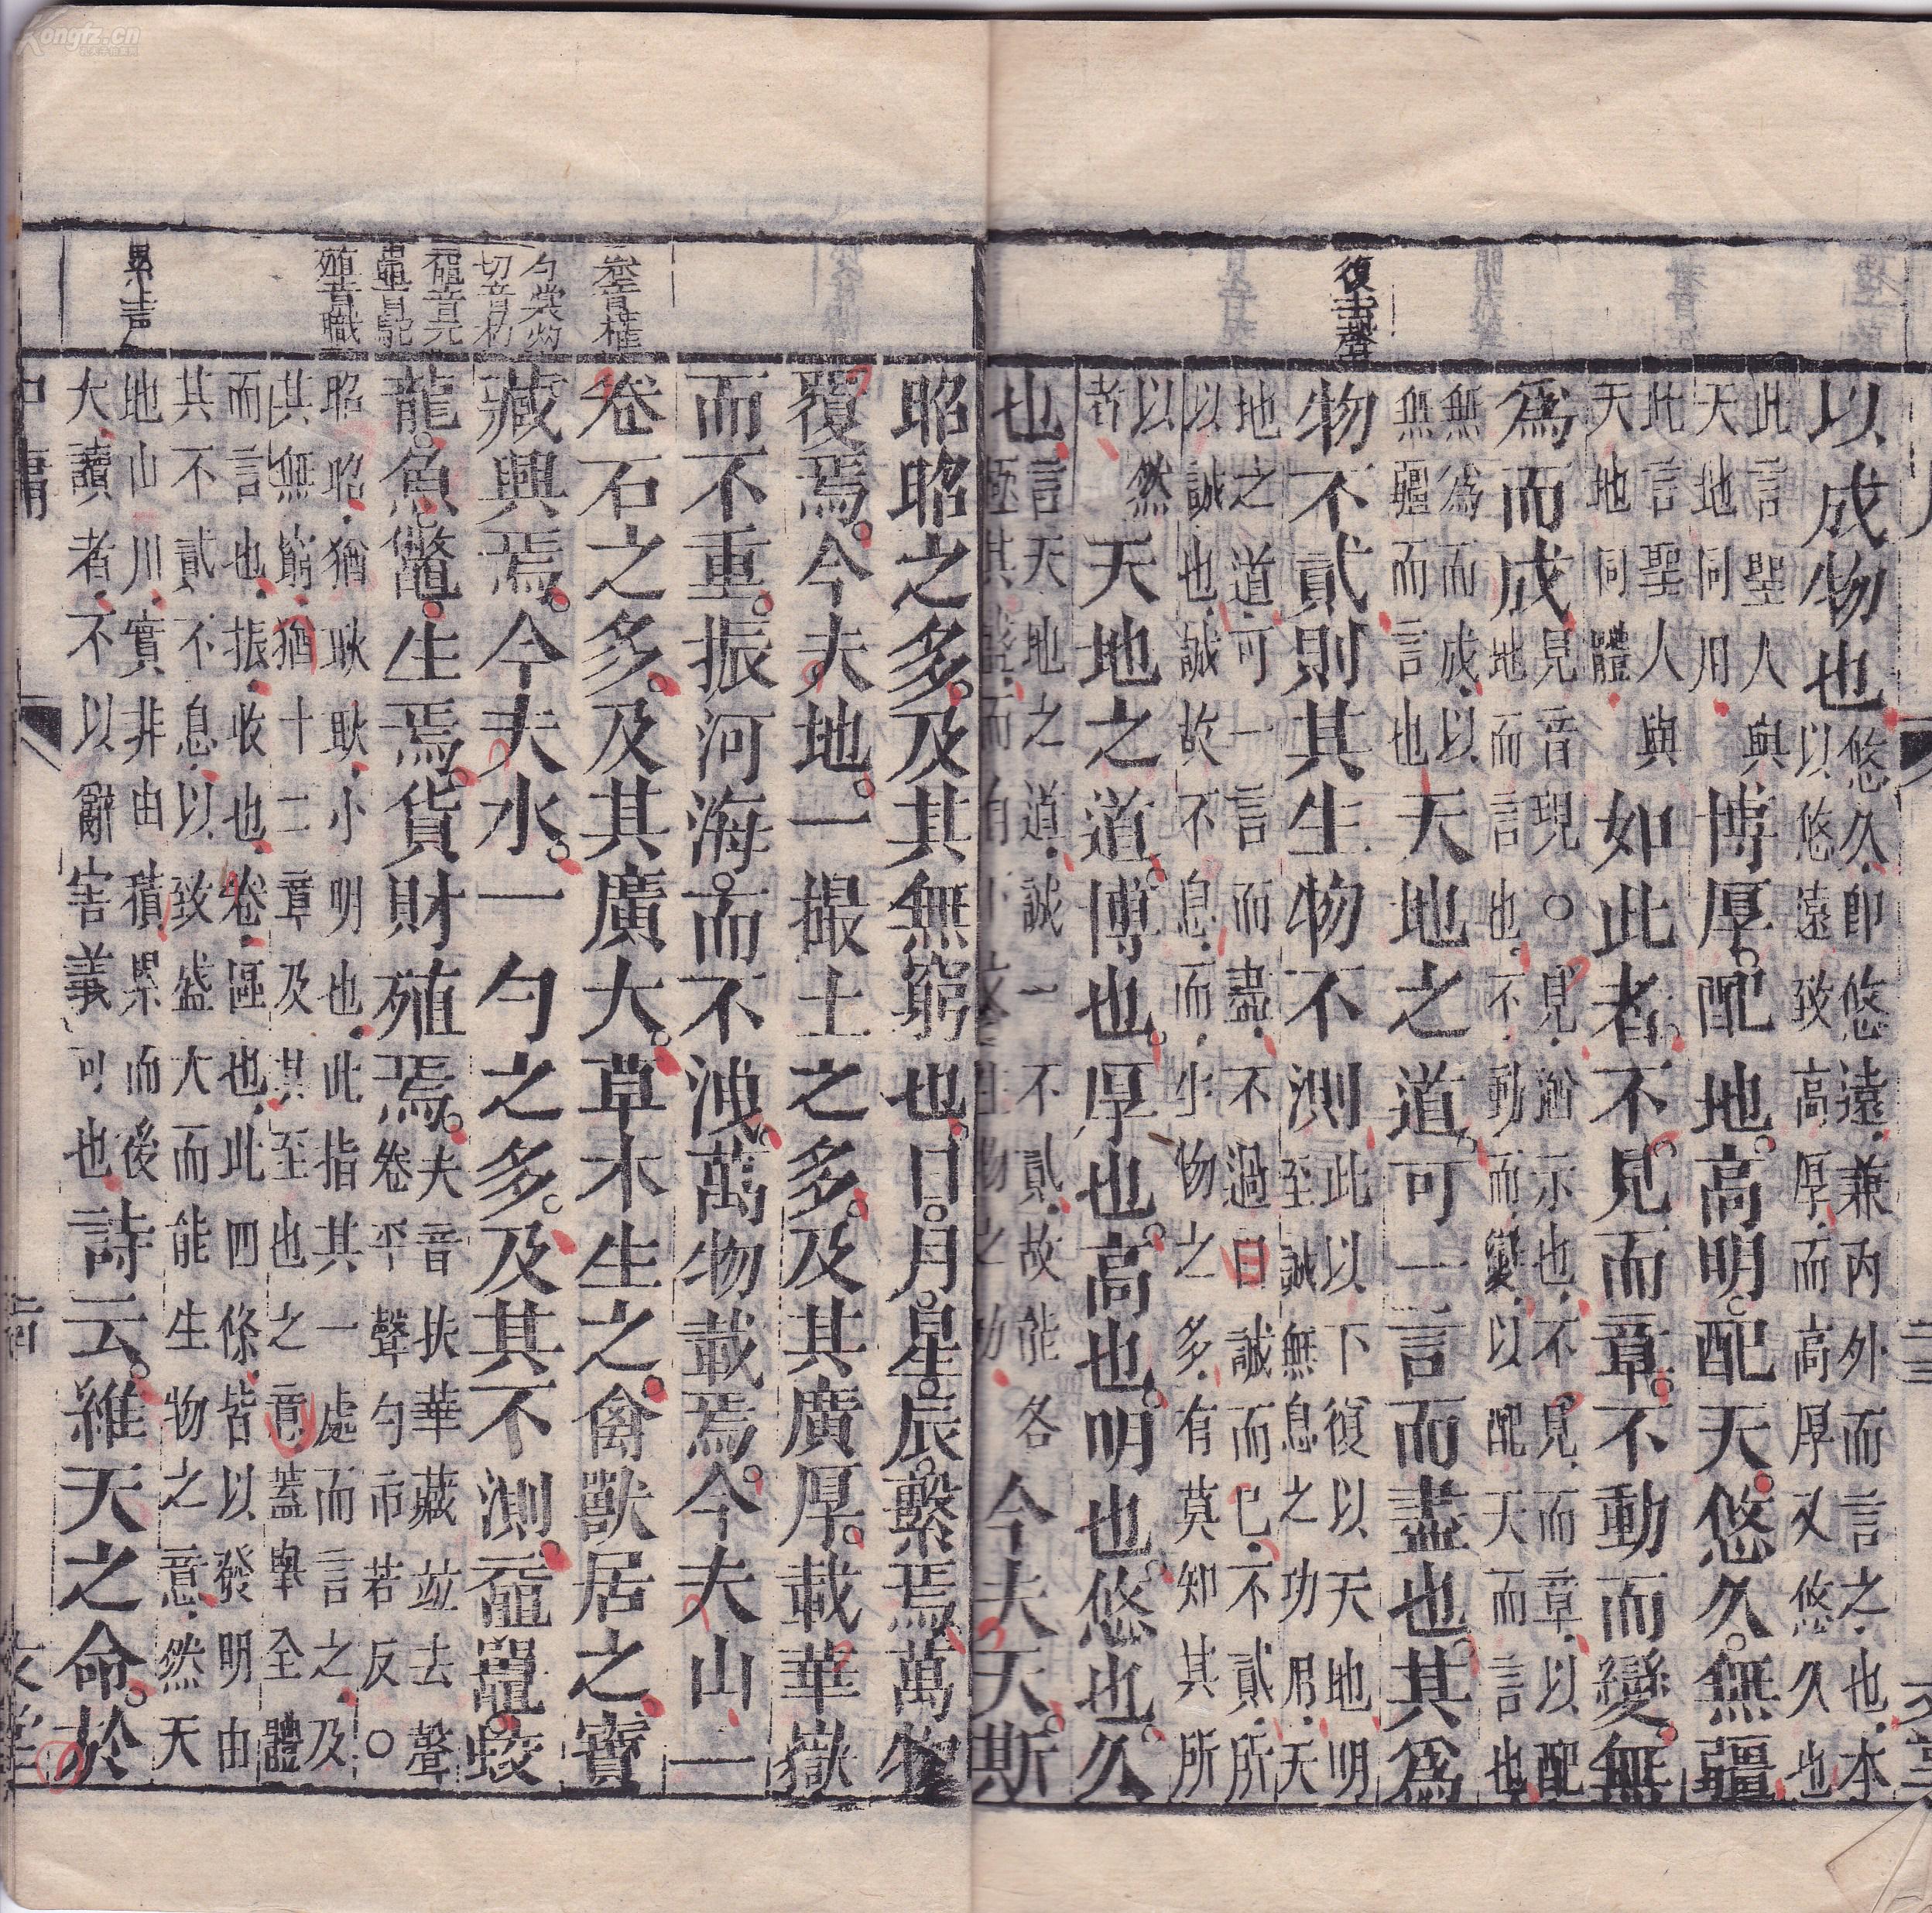 復去聲
以成物也悠久即悠遠兼內外而言之也本
以悠遠致高厚而高厚又悠久也
此言聖人與
天地同用
博厚配地高明配天悠久無疆
此言聖人與
天地同體
如此者不見而章不動而變無
為而成見音現○見猶示也不見而章以配
地而言也不動而變以配天而言也
無為而成以
無疆而言也
天地之道可一言而盡也其為
物不貳則其生物不測此以下復以天地明
至誠無息之功用天
地之道可一言而盡不過曰誠而已不貳所
以誠也誠故不息而生物之多有莫知其所
以然
者
天地之道博也厚也高也明也悠也久
也言天地之道誠一不貳故能各
極其盛而有下文生物之功
今夫天斯
卷音權
勺裳灼
切音杓
黿音元
鼉音駝
殖音職
累上声
昭昭之多及其無窮也日月星辰繫焉萬物
覆焉今夫地一撮土之多及其廣厚載華嶽
而不重振河海而不洩萬物載焉今夫山一
卷石之多及其廣大草木生之禽獸居之寶
藏興焉今夫水一勺之多及其不測黿鼉蛟
龍魚鼈生焉貨財殖焉夫音扶華藏並去聲
卷平聲勺市若反○
昭昭猶耿耿小明也此指其一處而言之及
其無窮猶十二章及其至也之意蓋舉全體
而言也振收也卷區也此四條皆以發明由
其不貳不息以致盛大而能生物之意然天
地山川實非由積累而後
大讀者不以辭害義可也
詩云維天之命於
中庸